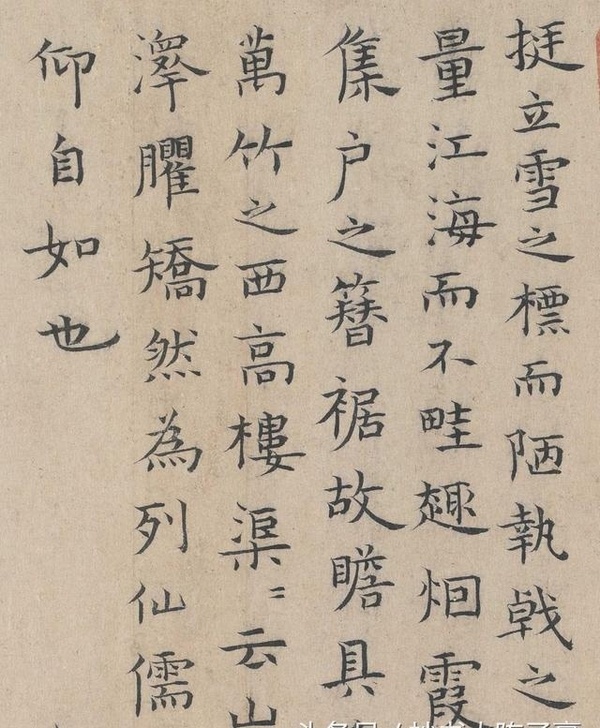 挺立雪之標而陋執戟之
量江海而不畦趣烱霞
集户之簪裾故瞻具
萬竹之西高樓渠〻云山
澤臞矯然為列仙儒
仰自如也